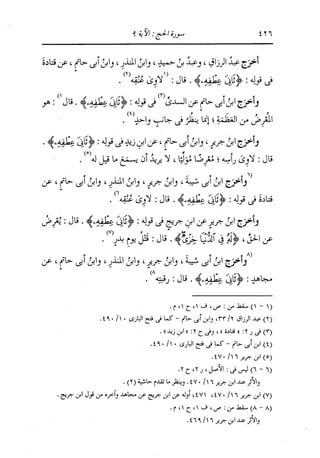 ٤٢٦ سورة الحج: الآية ٩
أخرج عبدُ الرزاقِ، وعبدُ بنُ حميدٍ، وابنُ المنذرِ، وابنُ أبى حاتمٍ، عن قتادةَ
فى قولِه: ﴿ثَانِىَ عِطْفِهِۦ﴾. قال: (١لاوِى عُنُقِه(٢).
وأخرَج ابنُ أبى حاتمٍ عن السدىِّ(٣) فى قولِه: ﴿ثَانِىَ عِطْفِهِۦ﴾. قال(١): هو
المُعْرِضُ من العظَمةِ؛ إنما ينظُرُ فى جانبٍ واحدٍ(٤).
وأخرَج ابنُ جريرٍ، وابنُ أبى حاتمٍ، عن ابنِ زيدٍ فى قولِه: ﴿ثَانِىَ عِطْفِهِۦ﴾.
قال: لاوِىَ رأسِه؛ مُعْرِضًا مُوَلِّيًا، لا يريدُ أن يسمَعَ ما قيل له(٥).
(٦وأخرَج ابنُ أبى شيبةَ، وابنُ جريرٍ، وابنُ المنذرِ، وابنُ أبى حاتمٍ، عن
قتادةَ فى قولِه: ﴿ثَانِىَ عِطْفِهِۦ﴾. قال: لاوِىَ عُنُقِه(٦).
وأخرَج ابنُ جريرٍ عن ابنِ جريجٍ فى قولِه: ﴿ثَانِىَ عِطْفِهِۦ﴾. قال: يُعرِضُ
عن الحقِّ، ﴿لَهُۥ فِى ٱلدُّنْيَا خِزْىٌ﴾. قال: قُتِل يومَ بدرٍ(٧).
(٨وأخرَج ابنُ أبى شيبةَ، وابنُ جريرٍ، وابنُ المنذرِ، وابنُ أبى حاتمٍ، عن
مجاهدٍ: ﴿ثَانِىَ عِطْفِهِۦ﴾. قال: رقبتِه(٨).
(١ - ١) سقط من: ص، ف ١، ح ١، م.
(٢) عبد الرزاق ٢/ ٣٣، وابن أبى حاتم - كما فى فتح البارى ١٠/ ٤٩٠.
(٣) فى ر ٢: «قتادة»، وفى ح ٢: «ابن زيد».
(٤) ابن أبى حاتم - كما فى فتح البارى ١٠/ ٤٩٠.
(٥) ابن جرير ١٦/ ٤٧٠.
(٦ - ٦) ليس فى: الأصل، ر ٢، ح ٢.
والأثر عند ابن جرير ١٦/ ٤٧٠. وينظر ما تقدم حاشية (٢).
(٧) ابن جرير ١٦/ ٤٧٠، ٤٧١، أوله عن ابن جريج عن مجاهد وآخره من قول ابن جريج.
(٨ - ٨) سقط من: ص، ف ١، ح ١، م.
والأثر عند ابن جرير ١٦/ ٤٦٩.